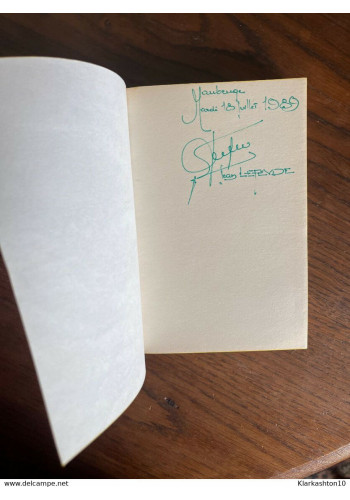 Maubeuge
Mardi 18 Juillet 1989
Jean
www.delcampe.net
Klarkashton10